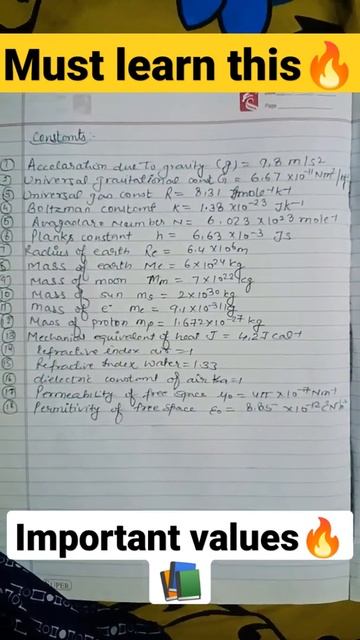 Must learn this🔥
Page
Constants:-
① Accelaration due To gravity (g) = 9.8 m/s2
② Universal gravitational const G = 6.67 x10-11 Nm2/
③ Universal gas const R = 8.31 Jmole-1k-1
④ Boltzman constant K = 1.38 x10-23 Jk-1
⑤ Avagadro Number N = 6.023x1023 mole-1
⑥ Planks constant h = 6.63 x10-3 Js
⑦ Radius of earth Re = 6.4 x106m
⑧ Mass of earth Me = 6x1024 kg
⑨ Mass of moon Mm = 7x1022 kg
⑩ Mass of sun ms = 2x1030 kg
⑪ Mass of e- me = 9.1x10-31 kg
⑫ Mass of proton mp = 1.672x10-27 kg
⑬ Mechanical equivalent of heat J = 4.2 J cal-1
⑭ refractive index air = 1
⑮ Refractive Index water = 1.33
⑯ dielectric constant of air Ka = 1
⑰ Permeability of free space μ0 = 4π x10-7 Nm-1
⑱ Permitivity of free space ε0 = 8.85 x10-12
Important values🔥
📚
SUPER